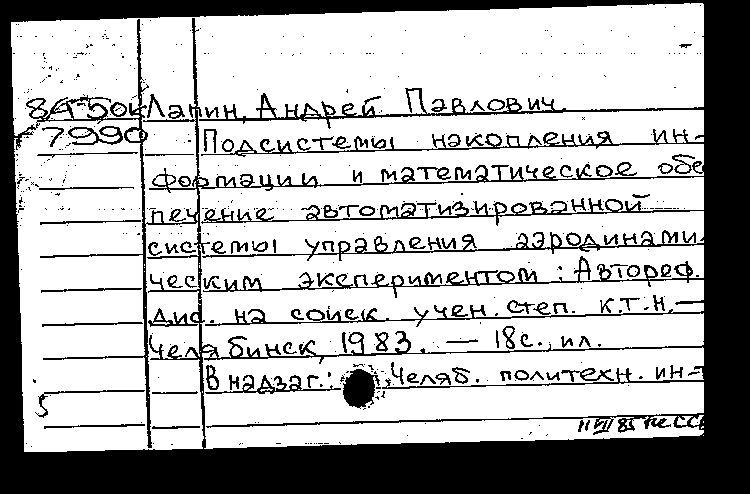 84-5ок Лапин, Андрей Павлович.
7990 Подсистемы накопления ин-
формации и математическое обе
печение автоматизированной
системы управления аэродинами
ческим экспериментом : Автореф.
дис. на соиск. учен. степ. к.т.н. —
Челябинск, 1983. — 18с., ил.
В надзаг.: Челяб. политехн. ин-т
5